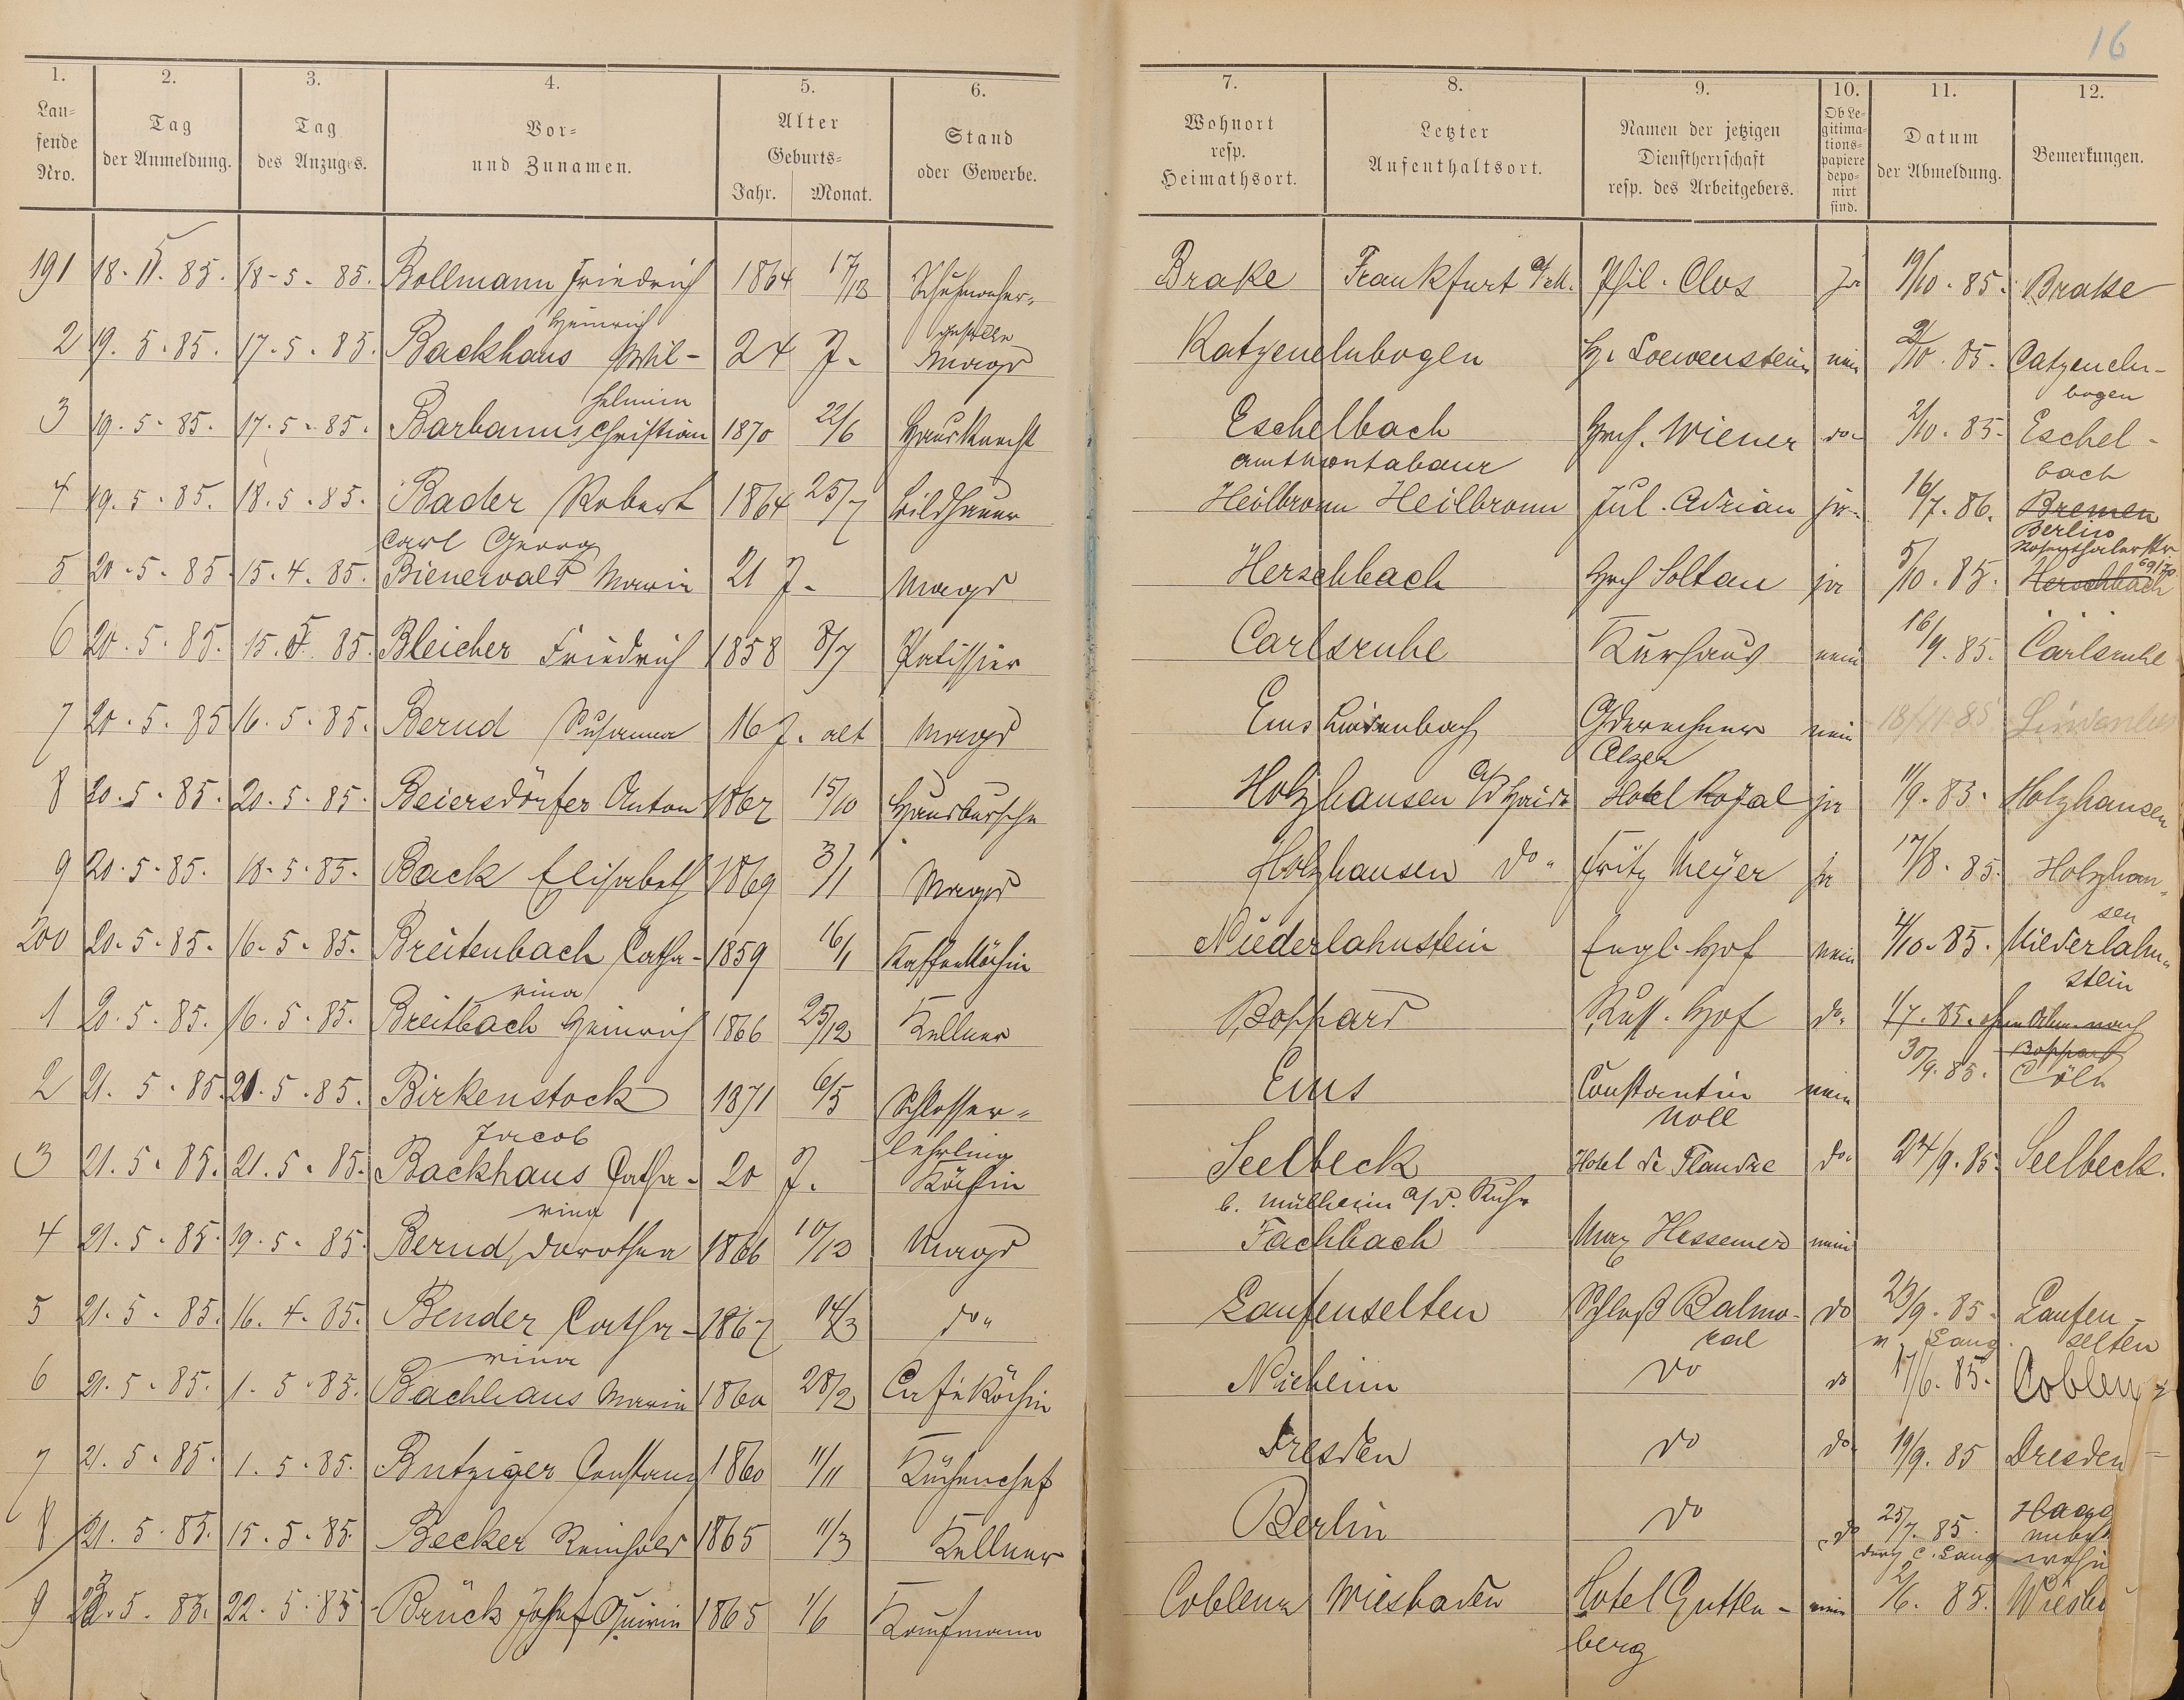 16
1. 2. 3. 4. 5. 6. 7. 8. 9. 10. 11. 12.
Lau=
fende
Nro.
Tag
der Anmeldung.
Tag
des Anzuges.
Vor=
und Zunamen.
Alter
Geburts=
Jahr. Monat.
Stand
oder Gewerbe.
Wohnort
resp.
Heimathsort.
Letzter
Aufenthaltsort.
Namen der jetzigen
Dienstherrschaft
resp. des Arbeitgebers.
Ob Le=
gitima=
tions=
papiere
depo=
nirt
sind.
Datum
der Abmeldung.
Bemerkungen.
191 18. 5. 85. 18-5-85. Bollmann Friedrich 1864 Schuhmacher= Brake Frankfurt a/M. Phil. Clos ja 19/10. 85. Brake
Heinrich geselle
2 19. 5. 85. 17-5-85. Backhaus Wil- 24 J. Magd Katzenelnbogen Hr. Loewenstein nein 2/10. 85. Catzeneln-
helmin bogen
3 19. 5. 85. 17. 5. 85. Barbanus Christian 1870 22/6 Hausknecht Eschelbach Hch. Wiener do. 2/10. 85. Eschel-
Amt Montabaur bach
4 19. 5. 85. 18. 5. 85. Bader Robert 1864 25/7 Bildhauer Heilbronn Heilbronn Jul. Adrian ja. 16/7. 86. Bremen
Carl Georg Berlin
Rosenthalerstr. 69/70
5 20. 5. 85. 15. 4. 85. Bienerwald Maria 21 J. Magd Herschbach Hch Soltau ja 5/10. 85. Herschbach
6 20. 5. 85. 15. 5. 85. Bleicher Friedrich 1858 8/7 Patissier Carlsruhe Kurhaus nein 16/9. 85. Carlsruhe
7 20. 5. 85 16. 5. 85. Bernd Susanna 16 J. alt Magd Ems Lindenbach nein 18/11 85
8 20. 5. 85. 20. 5. 85. Beiersdörfer Anton 1867 15/10 Hausbursche Holzhausen a/d Haide Hotel Royal ja 11/9. 85. Holzhausen
9 20. 5. 85. 18. 5. 85. Back Elisabeth 1869 3/1 Magd Holzhausen do. Fritz Meyer ja 17/8. 85. Holzhau-
sen
200 20. 5. 85. 16. 5. 85. Breitenbach Catha- 1859 16/1 Kaffeeköchin Niederlahnstein Engl. Hof nein 4/10. 85. Niederlahn-
rina stein
1 20. 5. 85. 16. 5. 85. Breitbach Heinrich 1866 25/12 Kellner Boppard Russ. Hof do. 1/7. 85. nach
Boppard
30/9. 85. Cöln
2 21. 5. 85. 21. 5. 85. Birkenstock 1871 6/5 Schlosser= Ems Constantin nein
Jacob lehrling Noll
3 21. 5. 85. 21. 5. 85. Backhaus Catha- 20 J. Köchin Seelbeck Hotel de Flandre do. 24/9. 85. Seelbeck.
rina b. Mülheim a/d. Ruhr
4 21. 5. 85. 19. 5. 85. Bernd, Dorothea 1866 10/12 Magd Fachbach Max Hessemer nein
5 21. 5. 85. 16. 4. 85. Bender Catha- 1867 do. Laufenselten Schloß Balmo- do 29/9. 85. Laufen-
rina ral Lang. selten
6 21. 5. 85. 1. 5. 85. Bachhaus Maria 1860 28/2 Café Köchin Nieheim do do 17/6. 85. Coblenz
7 21. 5. 85. 1. 5. 85. Butziger Constanz 1860 11/11 Küchenchef Dresden do do. 19/9. 85 Dresden
8 21. 5. 85. 15. 5. 85. Becker Reinhold 1865 11/3 Kellner Berlin do do 25/7. 85.
durch C. Lang
9 22. 5. 85. 22. 5. 85 Brück Josef Quirin 1865 1/6 Kaufmann Coblenz Wiesbaden Hotel Gutten- nein 2/6. 85. Wiesb
berg